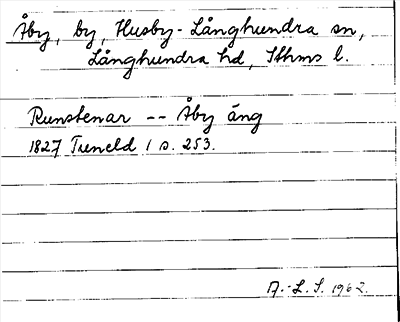 Åby, by, Husby-Långhundra sn,
Långhundra hd, Sthms l.
Runstenar -- Åby äng
1827 Tuneld 1 s. 253.
A.-L. S. 1962.